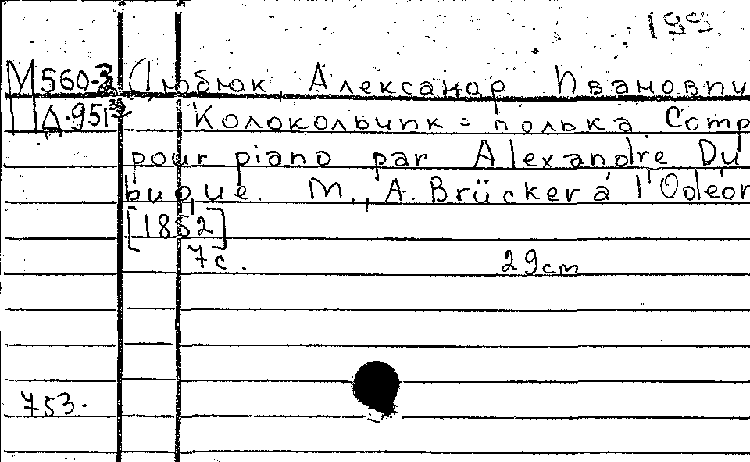 199
М560-3 Дюбюк, Александр Иванови
Д.951 Колокольчик = полька Comp
pour piano par Alexandre Du
buque. М., A. Brücker á l'Odéon
[1852]
7с. 29cm
753.